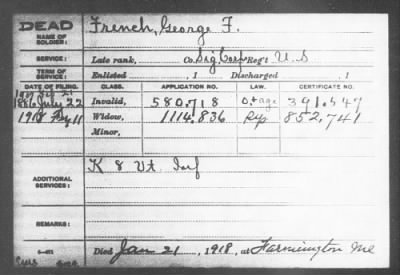 DEAD
NAME OF SOLDIER:
French, George F.
SERVICE:
Late rank, Co. Sig Corp Reg't U.S
TERM OF SERVICE:
Enlisted , 1 Discharged , 1
DATE OF FILING. CLASS. APPLICATION NO. LAW. CERTIFICATE NO.
1886 July 22 Invalid, 580.718 391.547
1918 11 Widow, 1114.836 852,741
Minor,
ADDITIONAL SERVICES:
K 8 Vt Inf
REMARKS:
Died Jan 21, 1918, at Farmington Me